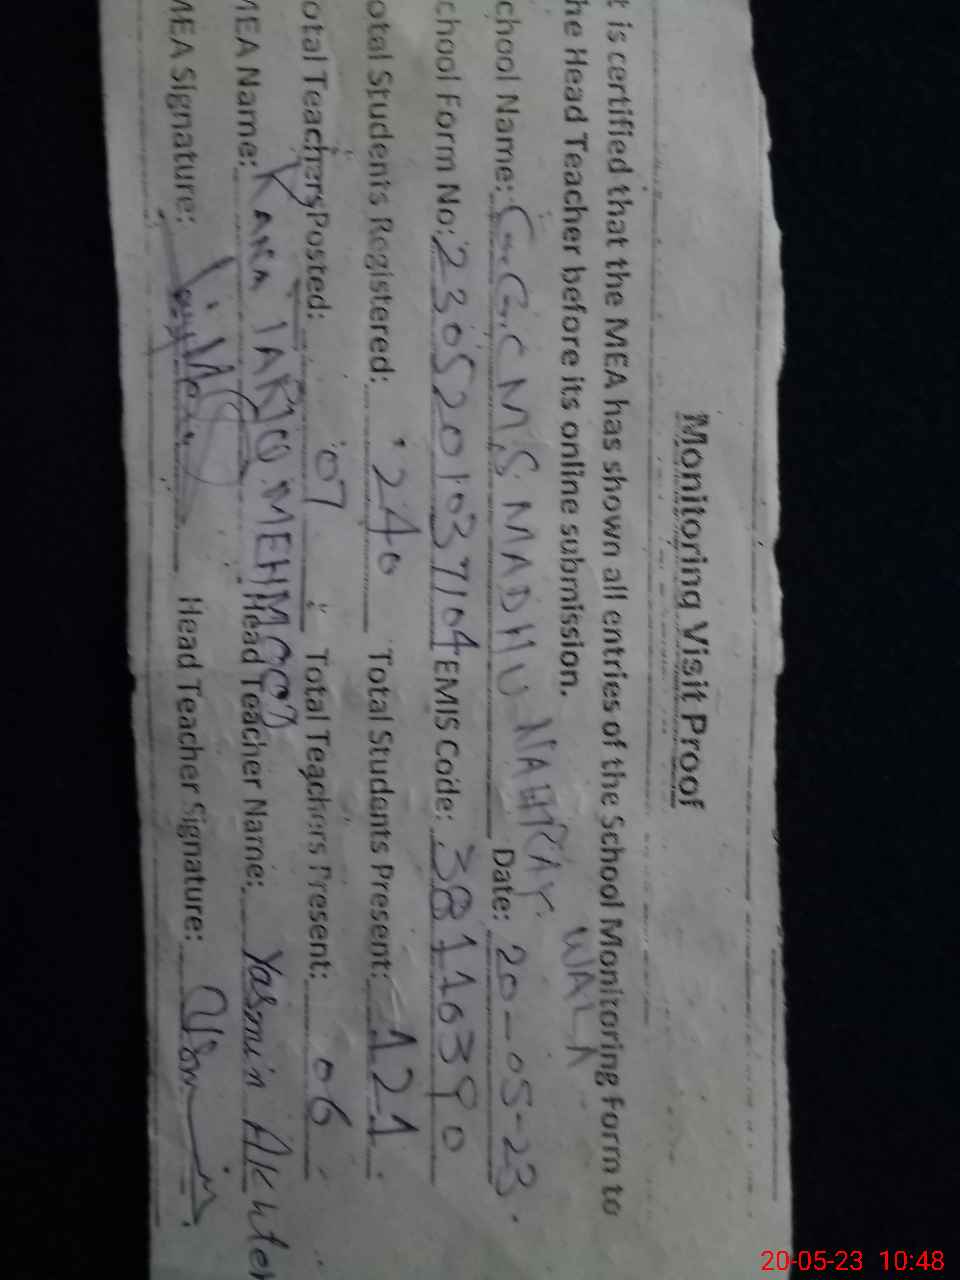 Monitoring Visit Proof
t is certified that the MEA has shown all entries of the School Monitoring Form to
he Head Teacher before its online submission.
chool Name: G.G.C.M.S MADHU NAHRAY WALA Date: 20-05-23.
chool Form No: 2305201037104 EMIS Code: 38110390
otal Students Registered: 240 Total Students Present: 121
otal Teachers Posted: 07 Total Teachers Present: 06
MEA Name: RANA TARIQ MEHMOOD Head Teacher Name: Yasmin Akhter
MEA Signature: Head Teacher Signature:
20-05-23 10:48